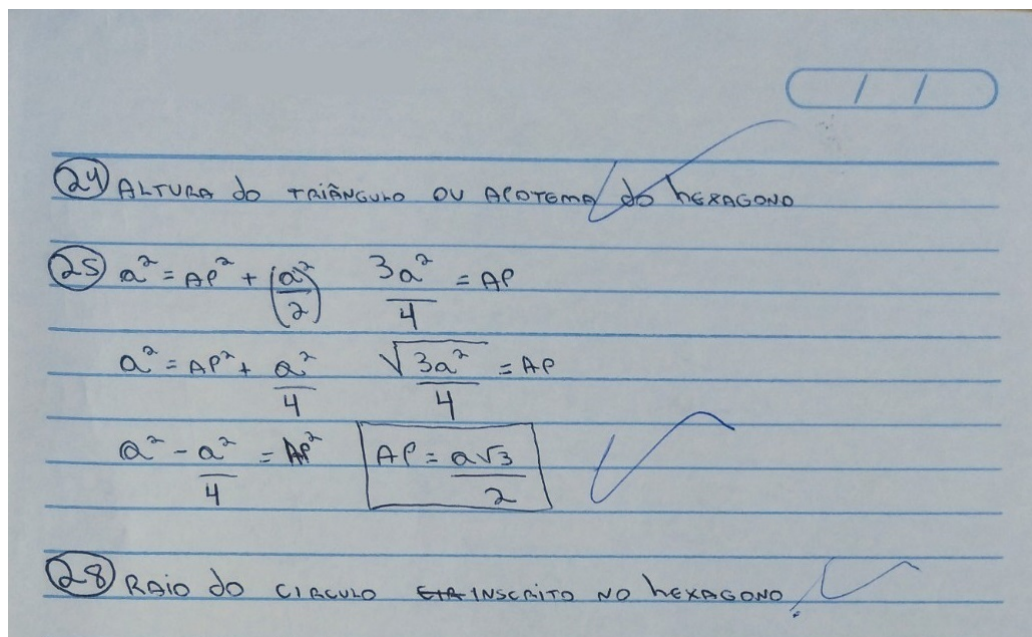 24 ALTURA do TRIÂNGULO OU APOTEMA do hEXAGONO
25 a² = AP² + (a/2)² 3a²/4 = AP
a² = AP² + a²/4 √3a²/4 = AP
a² - a²/4 = AP² AP = a√3/2
28 RAIO do CIRCULO INSCRITO NO hEXAGONO